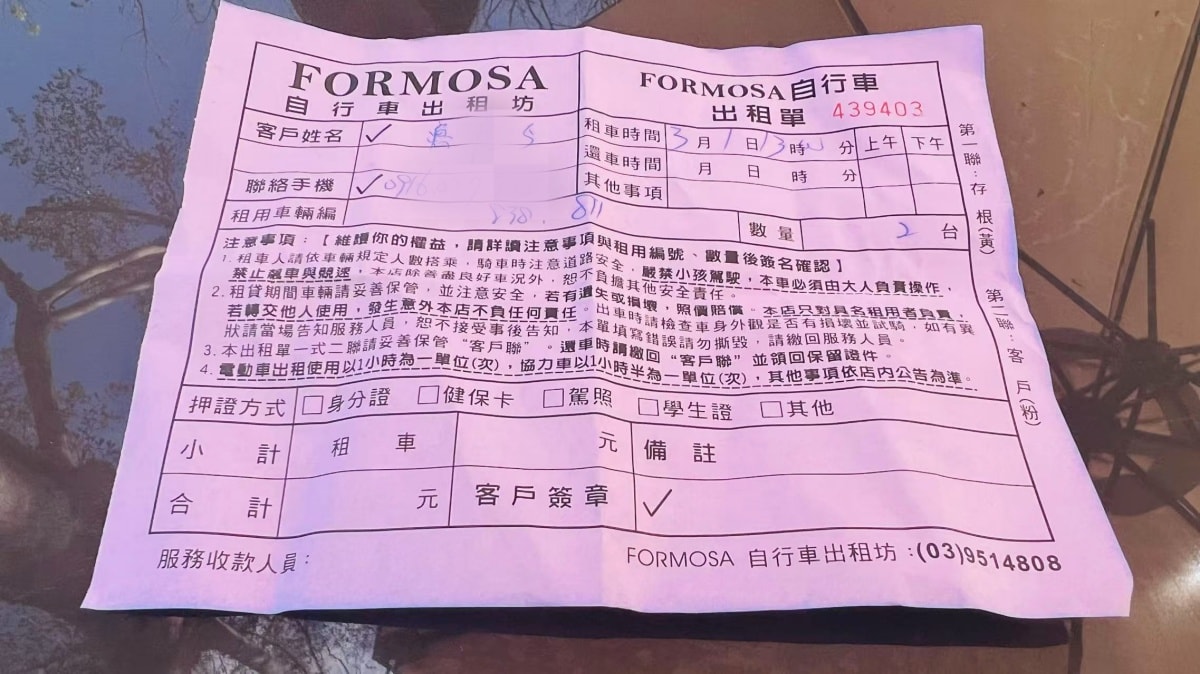 FORMOSA
自行車出租坊
FORMOSA自行車
出租單 439403
客戶姓名 ✓
租車時間 3月1日13時 分 上午 下午
還車時間 月 日 時 分
聯絡手機 ✓
其他事項
租用車輛編 838. 811
數量 2 台
注意事項:【維護你的權益,請詳讀注意事項與租用編號、數量後簽名確認】
1. 租車人請依車輛規定人數搭乘,騎車時注意道路安全,嚴禁小孩駕駛,本車必須由大人負責操作,
禁止飆車與競速,本店除善盡良好車況外,恕不負擔其他安全責任。
2. 租貸期間車輛請妥善保管,並注意安全,若有遺失或損壞,照價賠償。本店只對具名租用者負責,
若轉交他人使用,發生意外本店不負任何責任。出車時請檢查車身外觀是否有損壞並試騎,如有異
狀請當場告知服務人員,恕不接受事後告知,本單填寫錯誤請勿撕毀,請繳回服務人員。
3. 本出租單一式二聯請妥善保管“客戶聯”。還車時請繳回“客戶聯”並領回保留證件。
4. 電動車出租使用以1小時為一單位(次),協力車以1小時半為一單位(次),其他事項依店內公告為準。
押證方式 □身分證 □健保卡 □駕照 □學生證 □其他
小計 租車 元 備註
合計 元 客戶簽章 ✓
服務收款人員:
FORMOSA 自行車出租坊:(03)9514808
第一聯:存根(黃)
第二聯:客戶(粉)